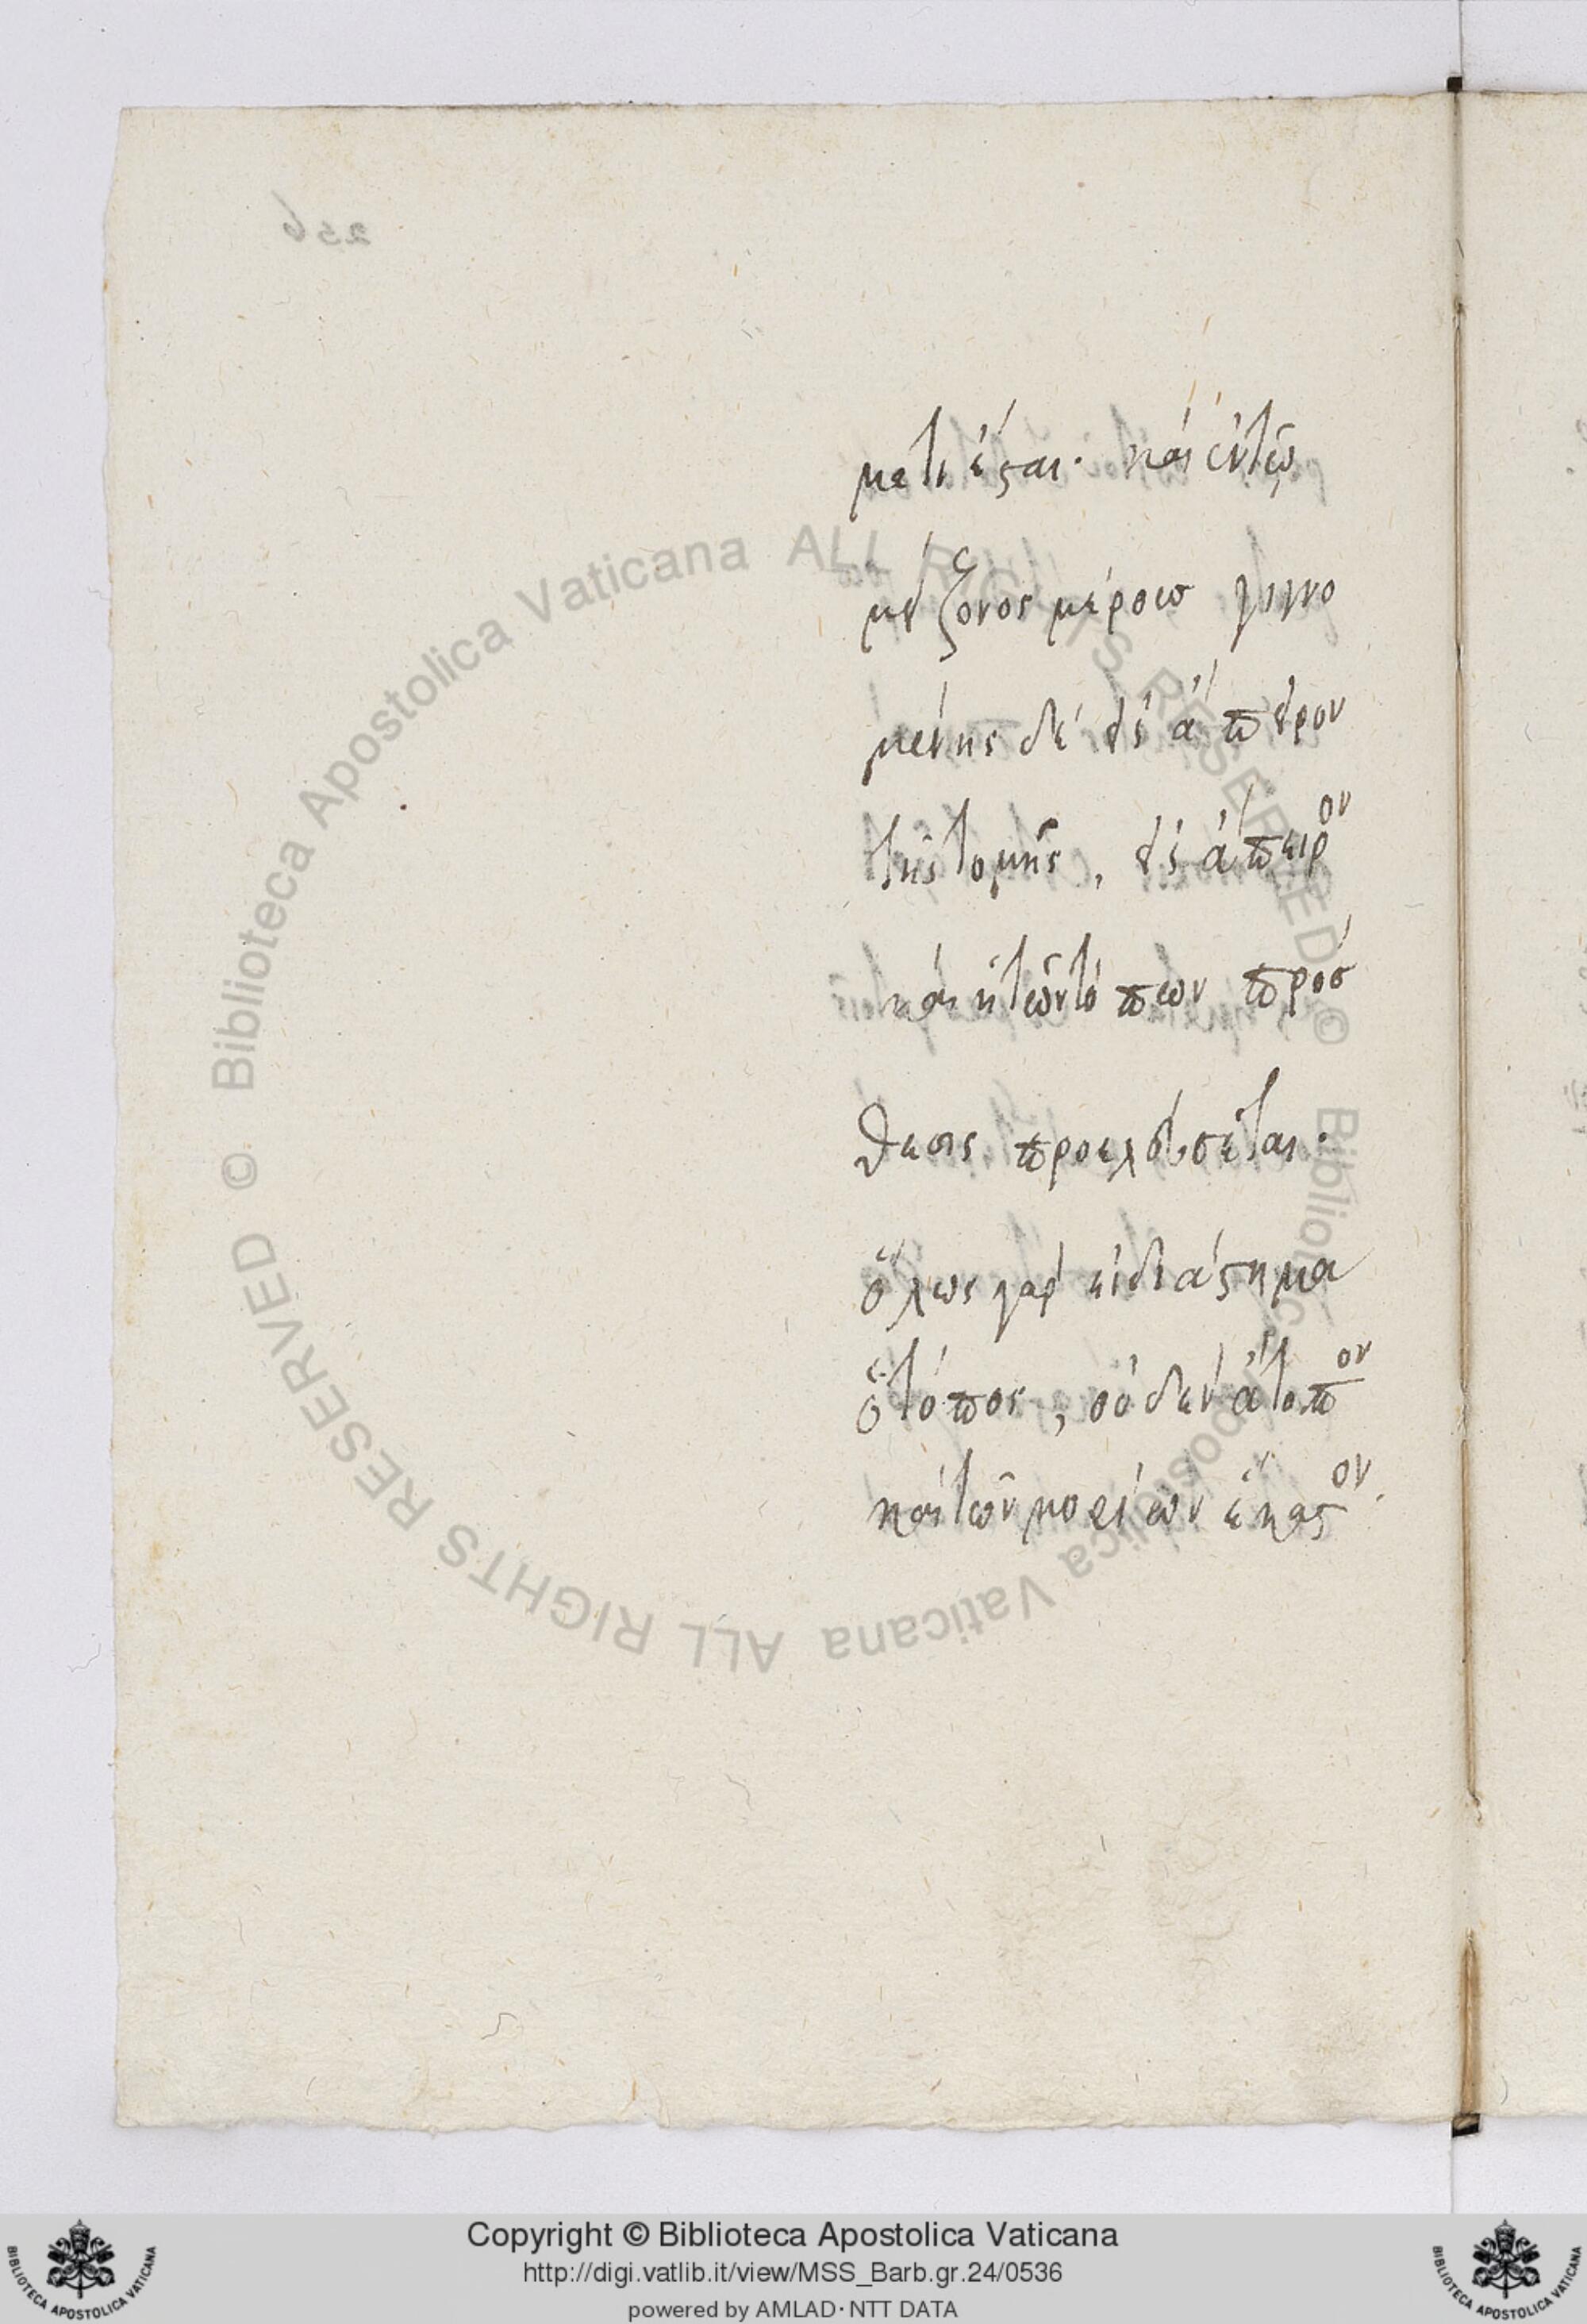 ματι ἔσται· καὶ ἐν τῷ
μείζονος μέρους γιγνο
μένης δὲ εἰς ἄπειρον
τῆς τομῆς, εἰς ἄπειρον
καὶ ἡ τῶν τόπων πρόσ
θεσις προελεύσεται·
ὅλως γὰρ εἰ διάστημα
ὁ τόπος, οὐδὲν ἄτοπον
καὶ τῶν μορίων ἕκαστον.
Biblioteca Apostolica Vaticana ALL RIGHTS RESERVED © Biblioteca Apostolica Vaticana ALL RIGHTS RESERVED ©
Copyright © Biblioteca Apostolica Vaticana
http://digi.vatlib.it/view/MSS_Barb.gr.24/0536
powered by AMLAD·NTT DATA
BIBLIOTECA APOSTOLICA VATICANA
BIBLIOTECA APOSTOLICA VATICANA